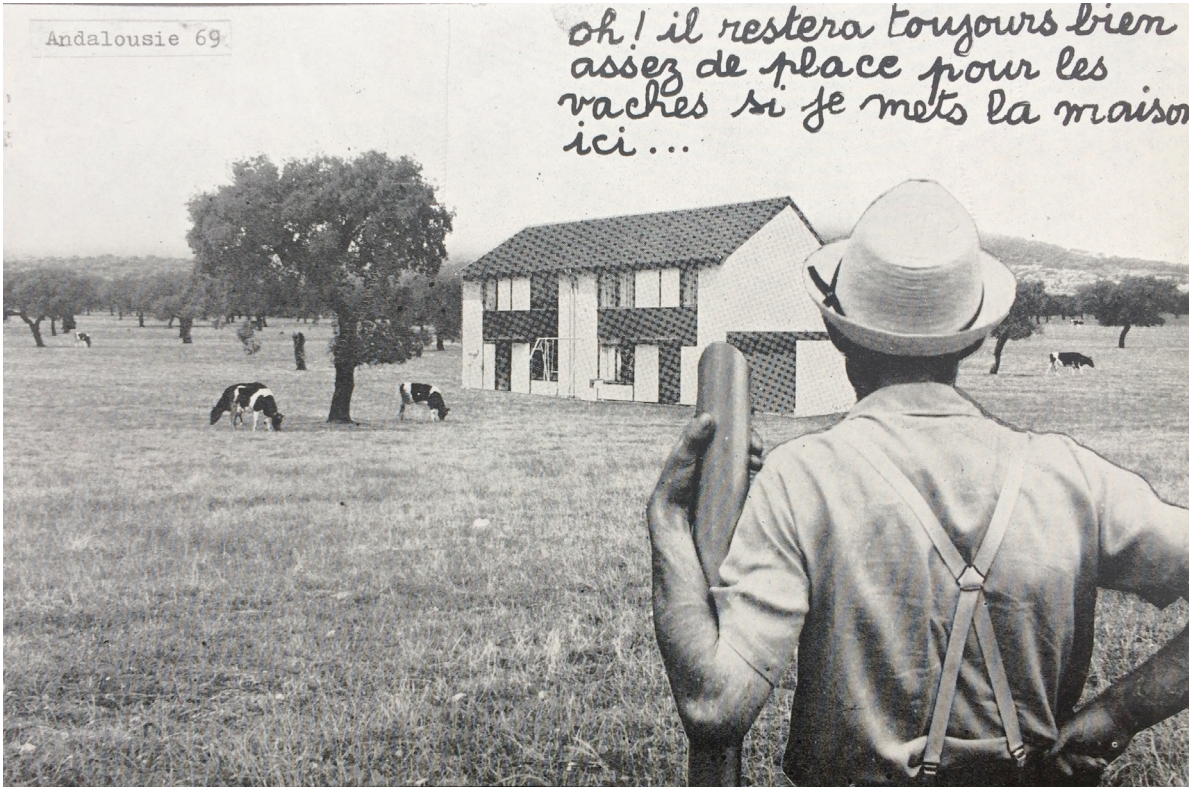 Andalousie 69
oh! il restera toujours bien
assez de place pour les
vaches si je mets la maison
ici...